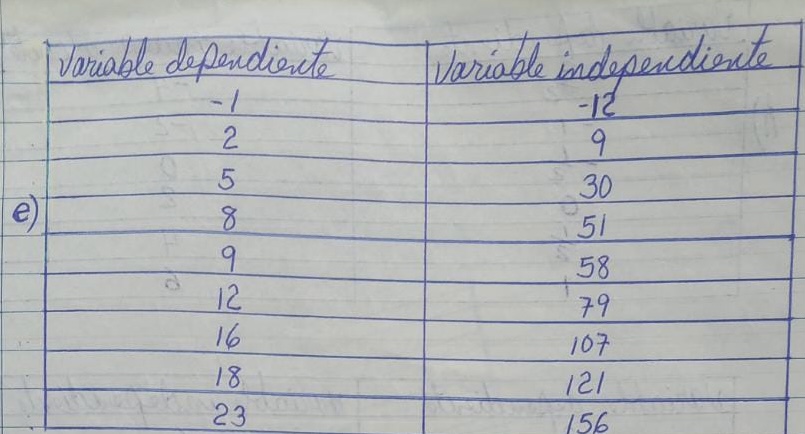 variable dependiente variable independiente
-1 -12
2 9
5 30
e) 8 51
9 58
12 79
16 107
18 121
23 156